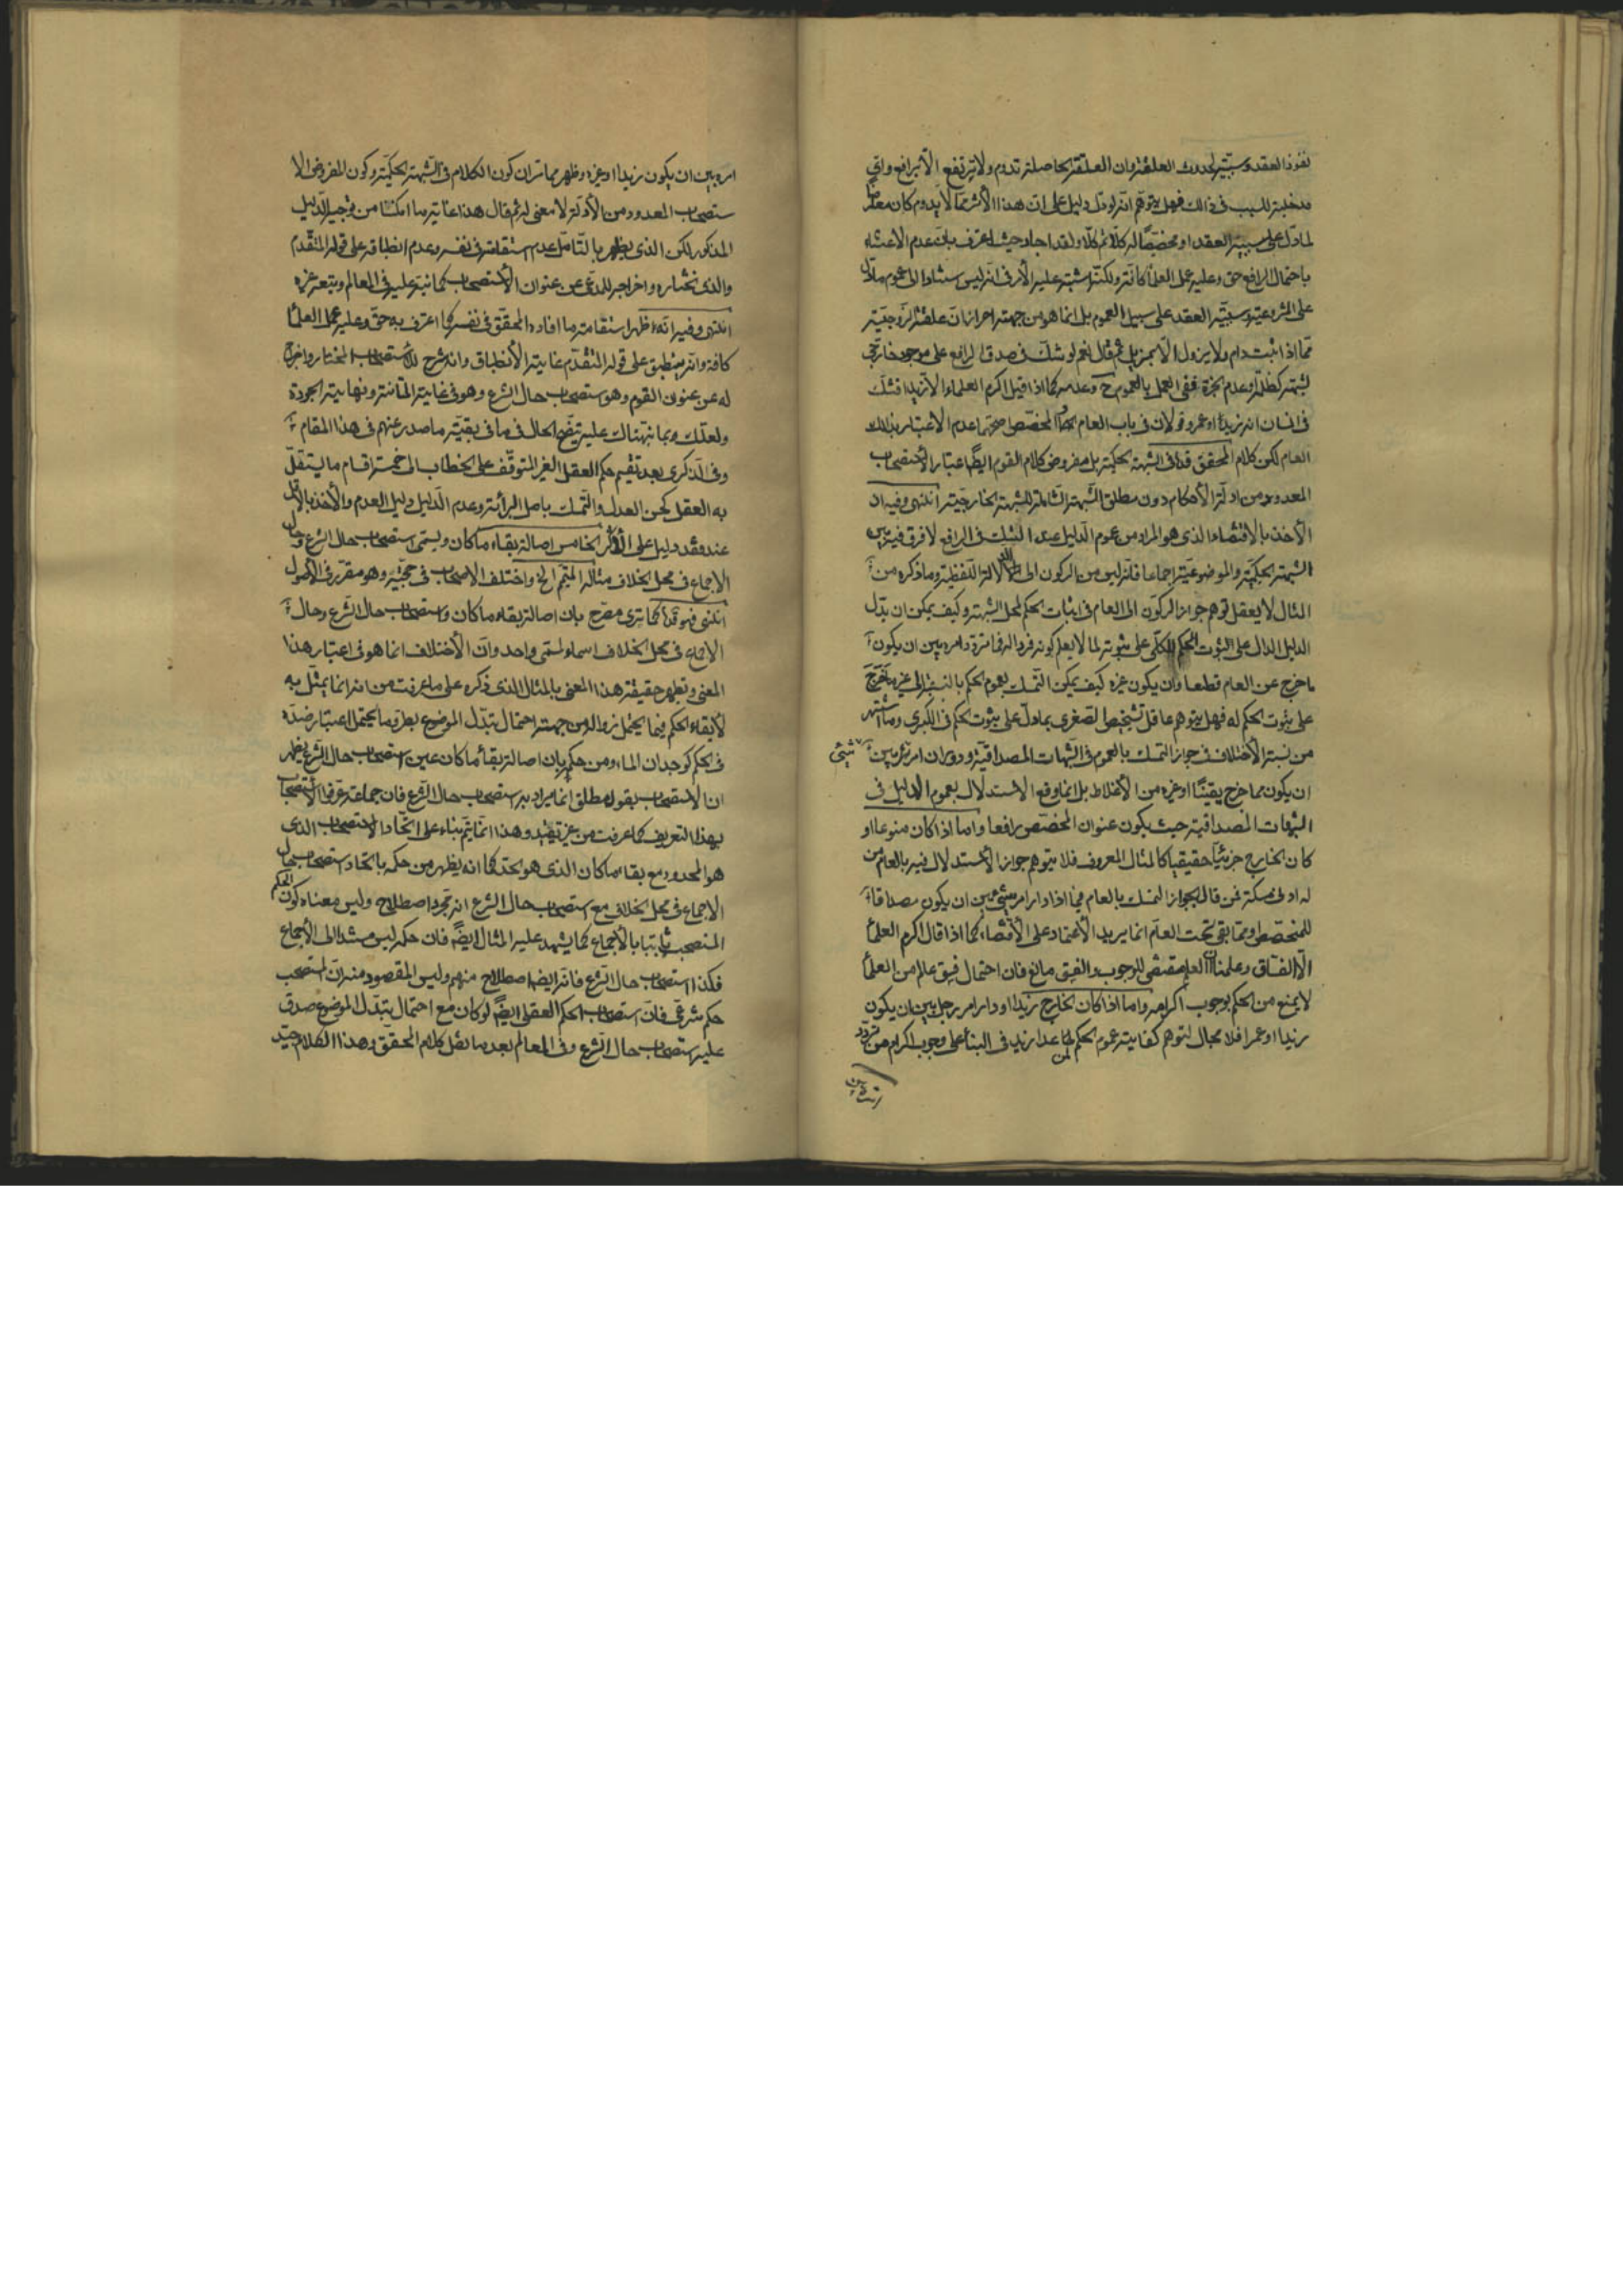 نفوذ العقد وسببية لحدوث العلقة وان العلقة الحاصلة تدوم ولا ترتفع الا برافع واي
مدخلية للسبب في ذلك فهل يتوهم انه لو دل دليل على ان هذا الاثر مما لا يدوم كان معارضا
لما دل على سببية العقد او مخصصا له كلا ثم كلا ولقد اجاد حيث اعترف بان عدم الاعتناء
باحتمال الرافع حق وعليه عمل العلماء كافة ولكنه اشتبه عليه الامر في انه ليس ستنادا الى عموم ما دل
على الشرعية وسببية العقد على سبيل العموم بل انما هو من جهة احراز ان علقة الزوجية
مما اذا ثبت دام ولا يزول الا بمزيل ثم قال نعم لو شك في صدق الرافع على موجود خارجي
لشبهة كظلمة وعدم الخبرة ففي العمل بالعموم ح وعدمه كما اذا قيل اكرم العلماء الا زيدا فشك
في انسان انه زيد او عمرو قولان في باب العام المخصص اصحهما عدم الاعتبار بذلك
العام لكن كلام المحقق قده في الشبهة الحكمية بل مفروض كلام القوم ايضا اعتبار الاستصحاب
المعدود من ادلة الاحكام دون مطلق الشبهة الشاملة للشبهة الخارجية انتهى وفيه ان
الاخذ بالاقتضاء الذي هو المراد من عموم الدليل عند الشك في الرافع لا فرق فيه بين
الشبهة الحكمية والموضوعية اجماعا فانه ليس من الركون الى الدلالة اللفظية وما ذكره من
المثال لا يعقل توهم جواز الركون الى العام في اثبات الحكم لمحل الشبهة وكيف يمكن ان يدل
الدليل الدال على الثبوت الحكم للكلي على ثبوته لما لا يعلم كونه فردا له فما تردد امره بين ان يكون
ما خرج عن العام قطعا وان يكون غيره كيف يمكن التمسك بعموم الحكم بالنسبة الى غير ما خرج
على ثبوت الحكم له فهل يتوهم عاقل تشخيص الصغرى بما دل على ثبوت الحكم في الكبرى وما اشتهر
من نسبة الاختلاف في جواز التمسك بالعموم في الشبهات المصداقية ودوران امر شيء بين
ان يكون مما خرج يقينا او غيره من الاغلاط بل انما وقع الاستدلال بعموم الدليل في
الشبهات المصداقية حيث يكون عنوان المخصص رافعا واما اذا كان منوعا او
كان الخارج جزئيا حقيقيا كالمثال المعروف فلا يتوهم جواز الاستدلال فيه بالعام من
له ادنى مسكة فمن قال بجواز التمسك بالعام فيما اذا دار امر شيء بين ان يكون مصداقا
للمخصص ومما بقي تحت العام انما يريد الاعتماد على الاقتضاء كما اذا قال اكرم العلماء
الا الفساق وعلمنا ان العلم مقتضى للوجوب والفسق مانع فان احتمال فسق عالم من العلماء
لا يمنع من الحكم بوجوب اكرامه واما اذا كان الخارج زيدا او دار امر رجل بين ان يكون
زيدا او عمرا فلا مجال لتوهم كفاية عموم الحكم لمن عدا زيد في البناء على وجوب اكرام من تردد
امره بين ان يكون زيدا او غيره وظهر مما مر ان كون الكلام في الشبهة الحكمية وكون المفروض الا
ستصحاب المعدود من الادلة لا معنى له ثم قال هذا غاية ما امكننا من توجيه الدليل
المذكور لكن الذي يظهر بالتامل عدم استقامته في نفسه وعدم انطباقه على قوله المتقدم
والذي نختاره واخراجه للمدعى عن عنوان الاستصحاب كما نبه عليه في المعالم وتبعه غيره
انتهى وفيه انه ظهر استقامة ما افاده المحقق في نفسه كما اعترف به حق وعليه عمل العلماء
كافة وانه ينطبق على قوله المتقدم غاية الانطباق وانه شرح للاستصحاب المختار واخراج
له عن عنوان القوم وهو ستصحاب حال الشرع وهو في غاية المتانة ونهاية الجودة
ولعلك وبما نبهناك عليه يتضح الحال في ما في بقية ما صدر عنهم في هذا المقام
وفي الذكرى بعد تقسيم حكم العقل الغير المتوقف على الخطاب الى خمسة اقسام ما يستقل
به العقل كحسن العدل والتمسك باصل البرائة وعدم الدليل دليل العدم والاخذ بالاقل
عند فقد دليل على الاكثر الخامس اصالة بقاء ما كان ويسمى استصحاب حال الشرع وحال
الاجماع في محل الخلاف مثاله المتيمم الخ واختلف الاصحاب في حجيته وهو مقرر في الاصول
انتهى فهو قده كما ترى مصرح بان اصالة بقاء ما كان واستصحاب حال الشرع وحال
الاجماع في محل الخلاف اسماء لمسمى واحد وان الاختلاف انما هو في اعتبار هذا
المعنى وتظهر حقيقة هذا المعنى بالمثال الذي ذكره على ما عرفت من انه انما يمثل به
لابقاء الحكم فيما يحتمل زواله من جهة احتمال تبدل الموضوع بطرو ما يحتمل اعتبار ضده
في الحكم كوجدان الماء ومن حكمه بان اصالة بقاء ما كان عين استصحاب حال الشرع يظهر
ان الاستصحاب بقول مطلق انما يراد به استصحاب حال الشرع فان جماعة عرفوا الاستصحاب
بهذا التعريف كما عرفت من غير تقييد وهذا انما يتم بناء على اتحاد الاستصحاب الذي
هو المحدود مع بقاء ما كان الذي هو الحد كما انه يظهر من حكمه باتحاد استصحاب حال
الاجماع في محل الخلاف مع استصحاب حال الشرع انه مجرد اصطلاح وليس معناه كون الحكم
المستصحب ثابتا بالاجماع كما يشهد عليه المثال ايضا فان حكمه ليس مستندا الى الاجماع
فكذا استصحاب حال الشرع فانه ايضا اصطلاح منهم وليس المقصود منه ان المستصحب
حكم شرعي فان استصحاب الحكم العقلي ايضا لو كان مع احتمال تبدل الموضوع صدق
عليه استصحاب حال الشرع وفي المعالم بعد ما نقل كلام المحقق وهذا الكلام جيد